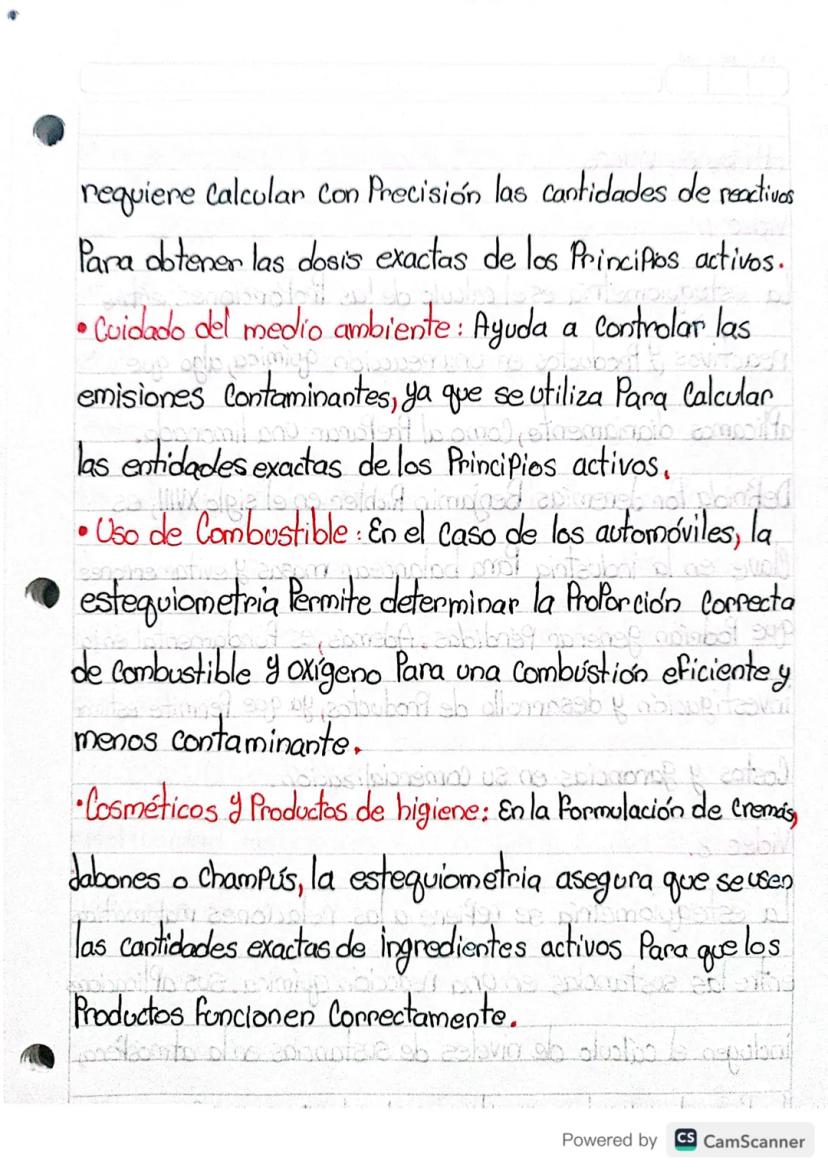 requiere calcular con Precisión las cantidades de reactivos
Para obtener las dosis exactas de los Principios activos.
• Cuidado del medio ambiente: Ayuda a controlar las
emisiones contaminantes, ya que se utiliza Para calcular
las entidades exactas de los Principios activos.
• Uso de Combustible: En el caso de los automóviles, la
estequiometria Permite determinar la ProPorción correcta
de combustible y oxígeno Para una combustión eficiente y
menos contaminante.
• Cosméticos y Productos de higiene: En la Formulación de cremas,
Jabones o champús, la estequiometria asegura que se usen
las cantidades exactas de ingredientes activos Para que los
Productos Funcionen Correctamente.
Powered by CS CamScanner